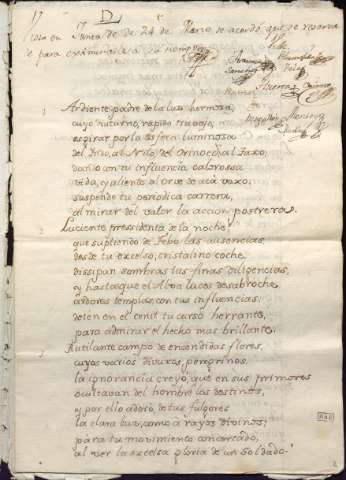 17 D
en Junta de 24 de Marzo se acordó que se reserve
para examinarla a su tiempo
1 Ardiente padre de la luz hermosa,
cuyo nocturno, rapido trabajo,
es girar por la esfera luminosa
del Indo, al Nilo, del Orinoco, al Taxo,
dando con tu influencia calorosa
vida, y aliento al orve de acá vaxo,
suspende tu periodica carrera,
al mirar del valor la accion postrera.
2 Luciente pressidenta de la noche,
que supliendo de Febo las ausencias,
desde tu excelso, cristalino coche,
dissipan sombras tus finas diligencias,
y hasta que el Alva luces desabroche,
ardores templas con tus influencias;
detén en el cenit tu curso herrante,
para admirar el hecho mas brillante.
3 Rutilante campo de encendidas flores,
cuyos varios divuxos, peregrinos,
la ignorancia creyó, que en sus primores
ocultavan del hombre los destinos,
y por ello adoró, de tus fulgores
la clara luz, como á rayos divinos;
para tu movimiento concertado,
al ver la excelsa gloria de un Soldado.